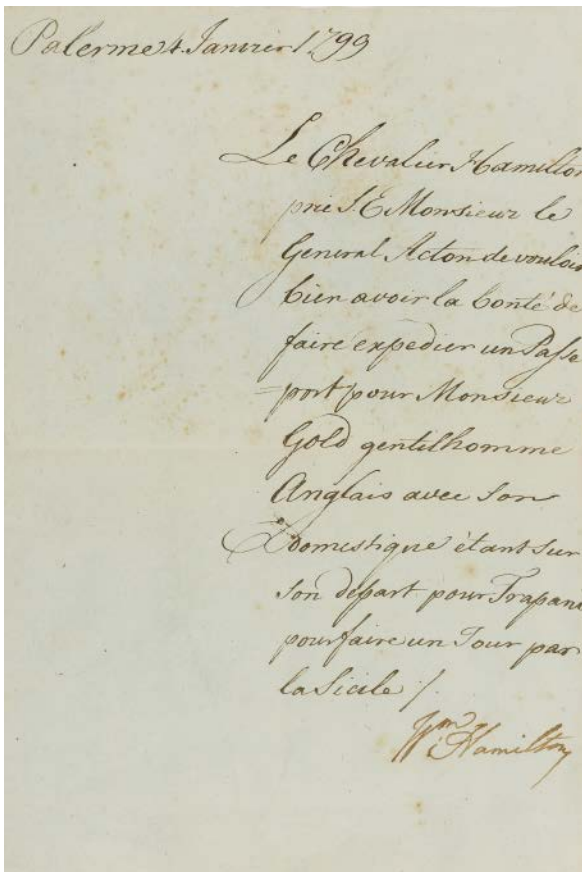 Palerme 4. Janvier 1799
Le Chevalier Hamilton
prie S. E Monsieur le
General Acton de vouloir
bien avoir la bonté de
faire expedier un Passe
=port pour Monsieur
Gold gentilhomme
Anglais avec son
Domestique étant sur
son départ pour Trapani
pour faire un Tour par
la Sicile /.
Wm Hamilton